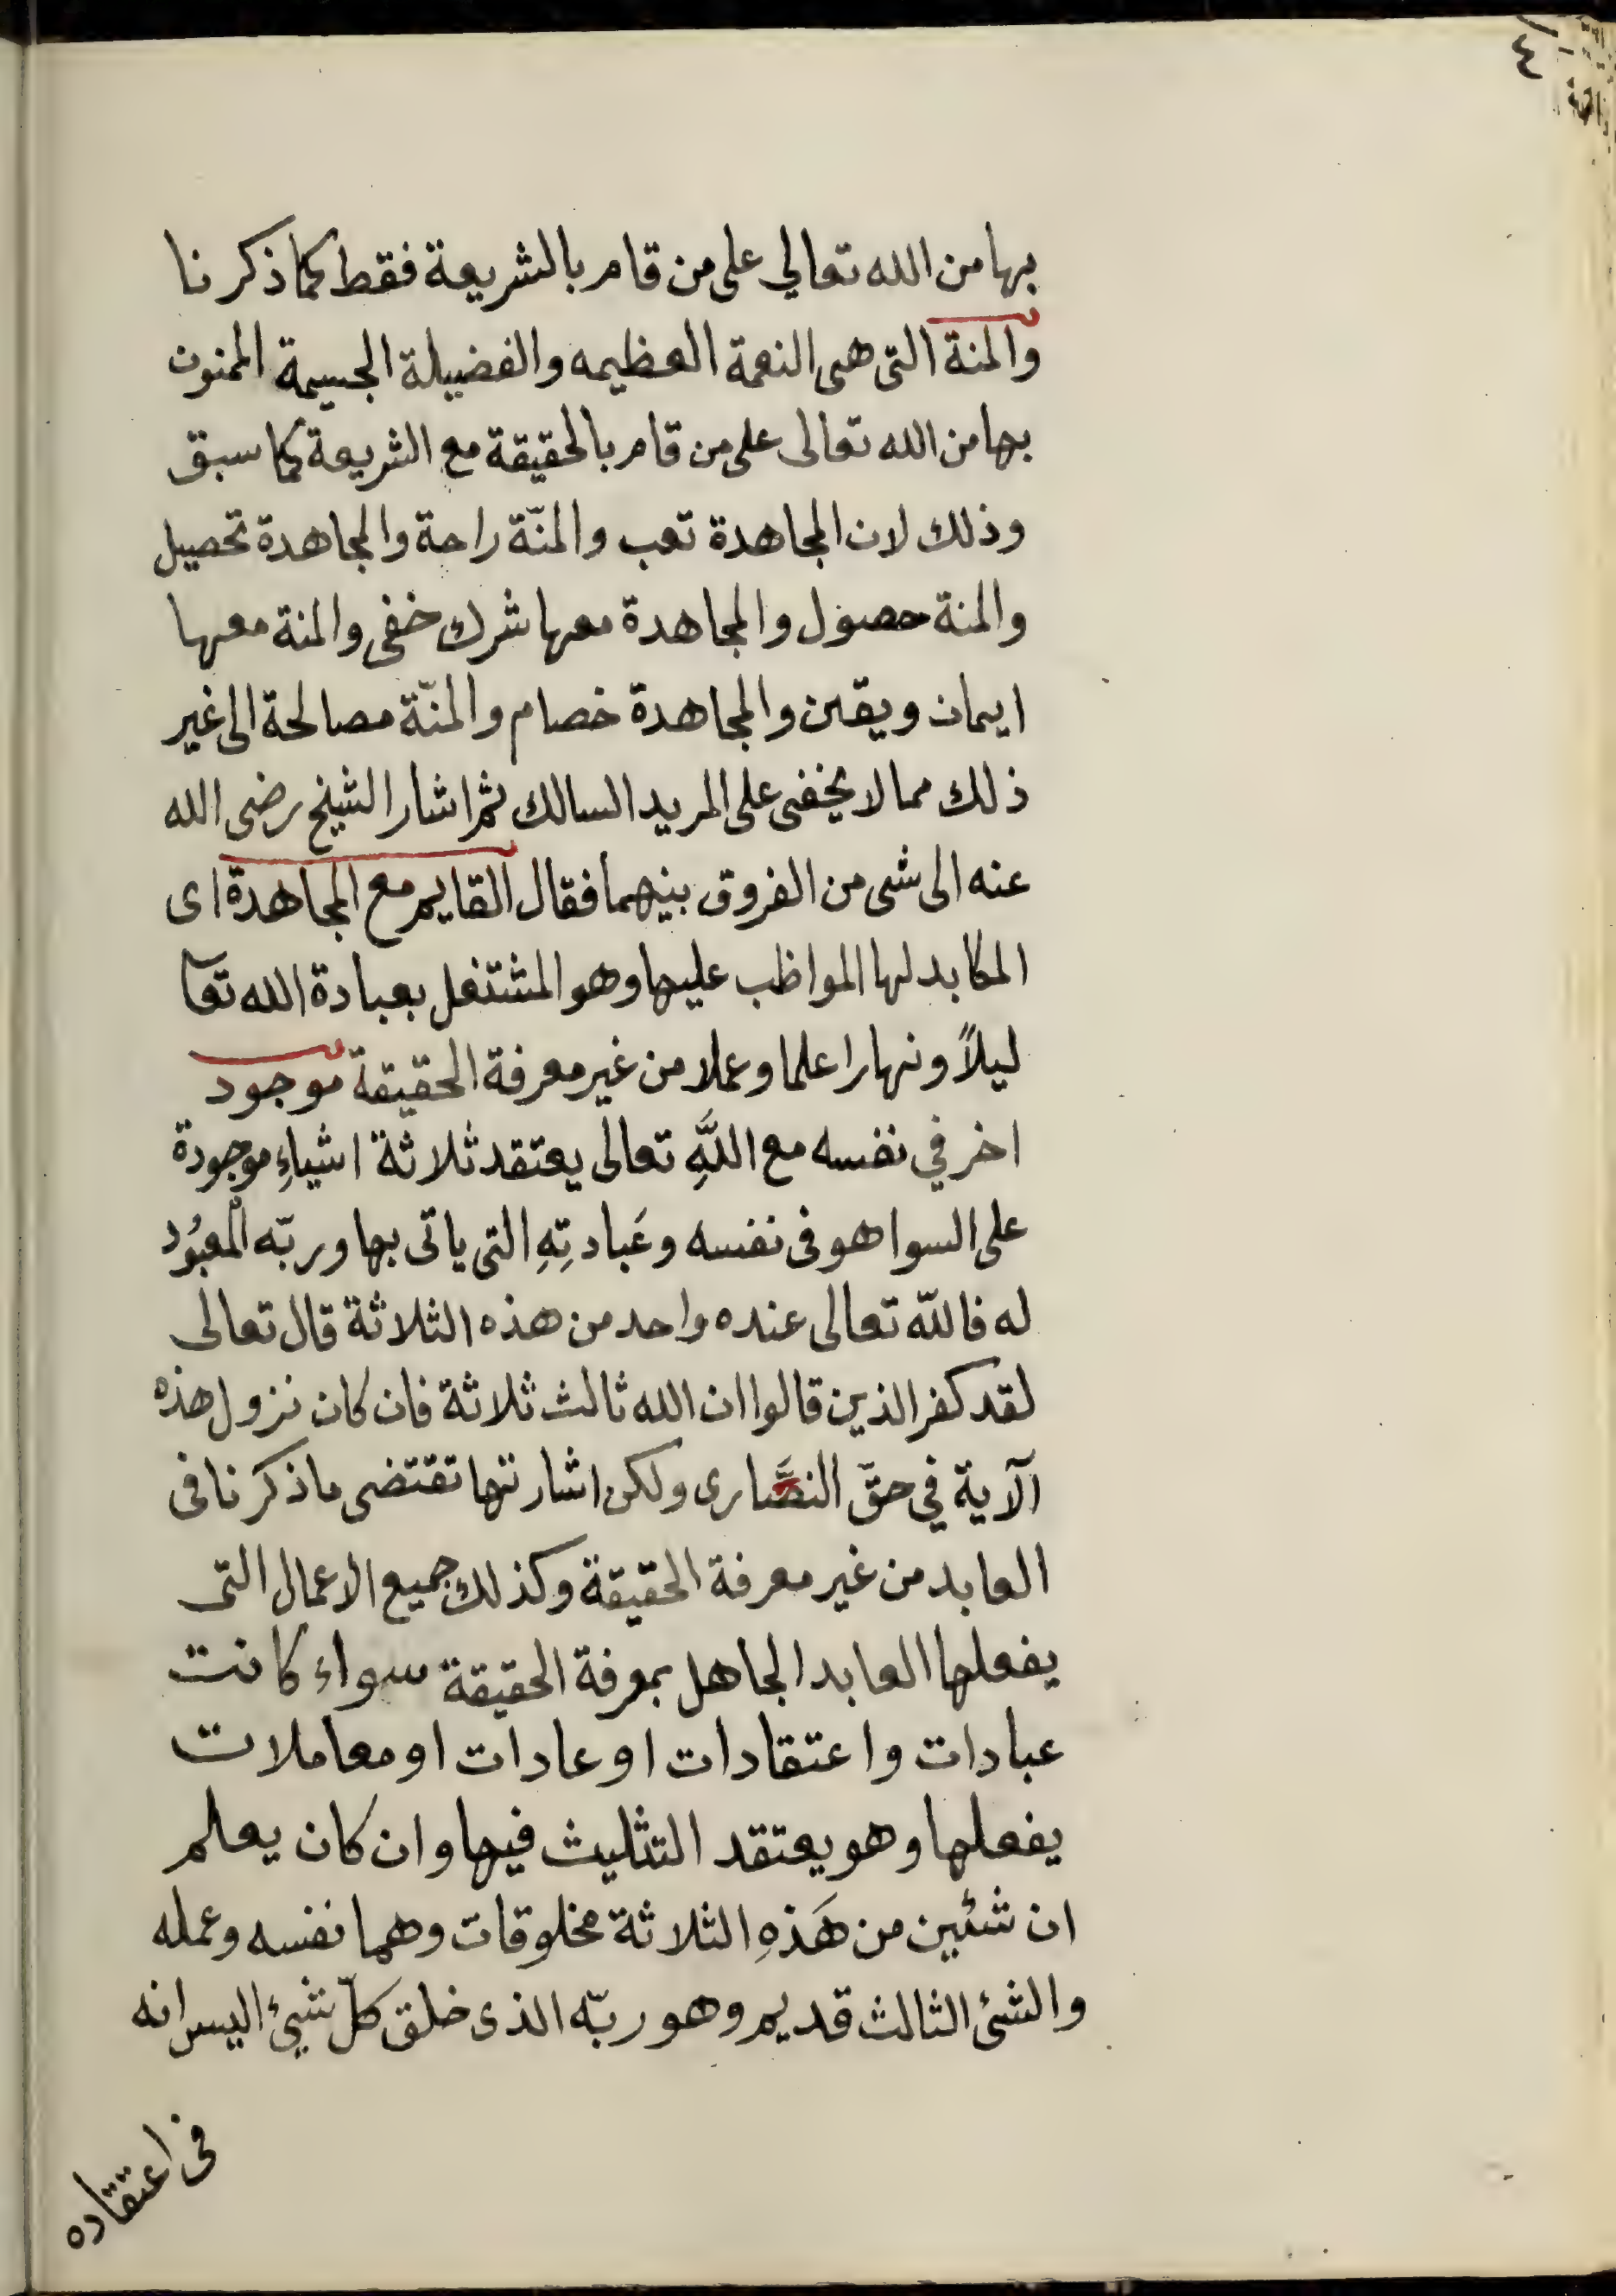 ٤
بها من الله تعالي على من قام بالشريعة فقط كما ذكرنا
والمنة التى هى النعمة العظيمه والفضيلة الجسيمة الممنون
بها من الله تعالى على من قام بالحقيقة مع الشريعة كما سبق
وذلك لان المجاهدة تعب والمنّة راحة والمجاهدة تحصيل
والمنة حصول والمجاهدة معها شرك خفى والمنة معها
ايمان ويقين والمجاهدة خصام والمنّة مصالحة الى غير
ذلك مما لا يخفى على المريد السالك ثم اشار الشيخ رضى الله
عنه الى شى من الفروق بينهما فقال القايم مع المجاهدة اى
المكابد لها المواظب عليها وهو المشتغل بعبادة الله تعا
ليلاً ونهارا علما وعملا من غير معرفة الحقيقة موجود
اخر في نفسه مع اللَّهِ تعالى يعتقد ثلاثة اشياءِ موجودة
على السوا هو فى نفسه وعَبادتِهِ التى ياتى بها وربّه المعبُود
له فاللّه تعالى عنده واحد من هذه الثلاثة قال تعالى
لقد كفر الذين قالوا ان الله ثالث ثلاثة فان كان نزول هذه
الآية في حقّ النصَّارى ولكن اشارتها تقتضى ما ذكرنا فى
العابد من غير معرفة الحقيقة وكذلك جميع الاعمال التى
يفعلها العابد الجاهل بمعرفة الحقيقة سواء كانت
عبادات واعتقادات او عادات او معاملات
يفعلها وهو يعتقد التثليث فيها وان كان يعلم
ان شئين من هَذهِ الثلاثة مخلوقات وهما نفسه وعمله
والشئ الثالث قديم وهو ربّه الذى خلق كلّ شئ اليس انه
فى اعتقاده